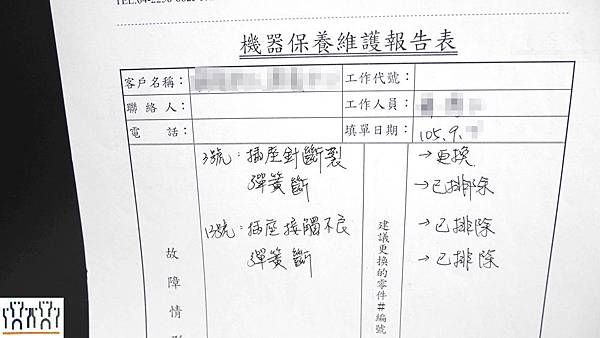 機器保養維護報告表
客戶名稱： 工作代號：
聯絡人： 工作人員：
電話： 填單日期： 105.9.
3號：插座針斷裂 →更換
彈簧斷 →已排除
13號：插座接觸不良 →已排除
彈簧斷 →已排除
故障情
建議更換的零件#編號